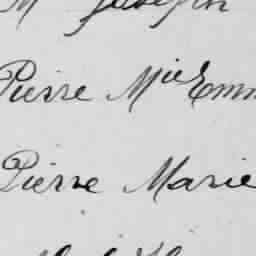 M Joseph
Pierre Mie Emm
Pierre Marie